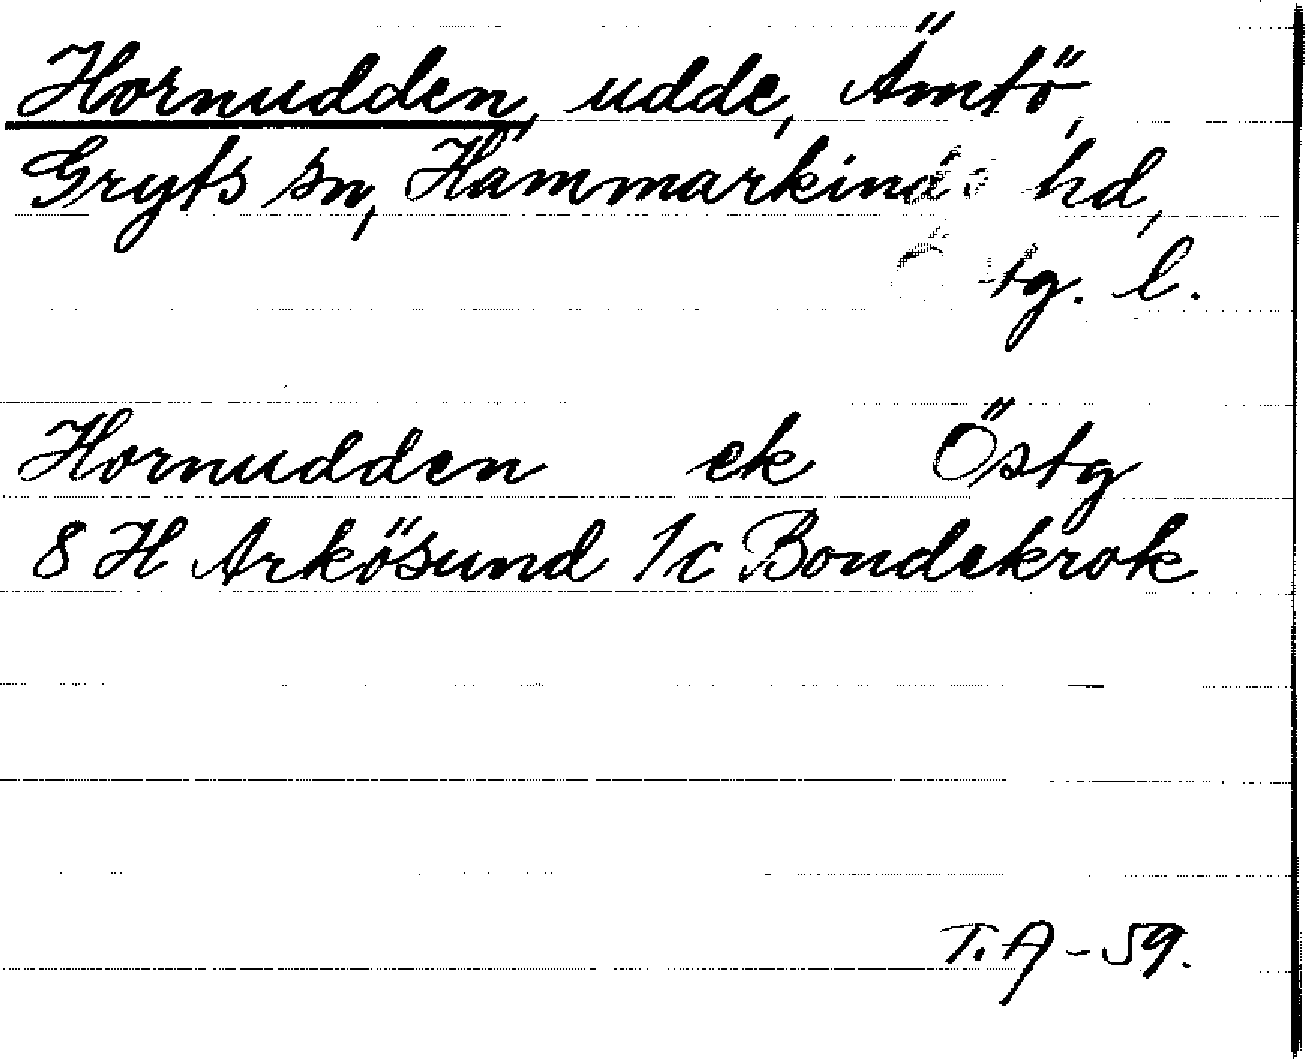 Hornudden, udde, Ämtö,
Gryts sn, Hammarkinds hd,
Östg. l.
Hornudden ek Östg
8 H Arkösund 1c Bondekrok
T.A - 59.